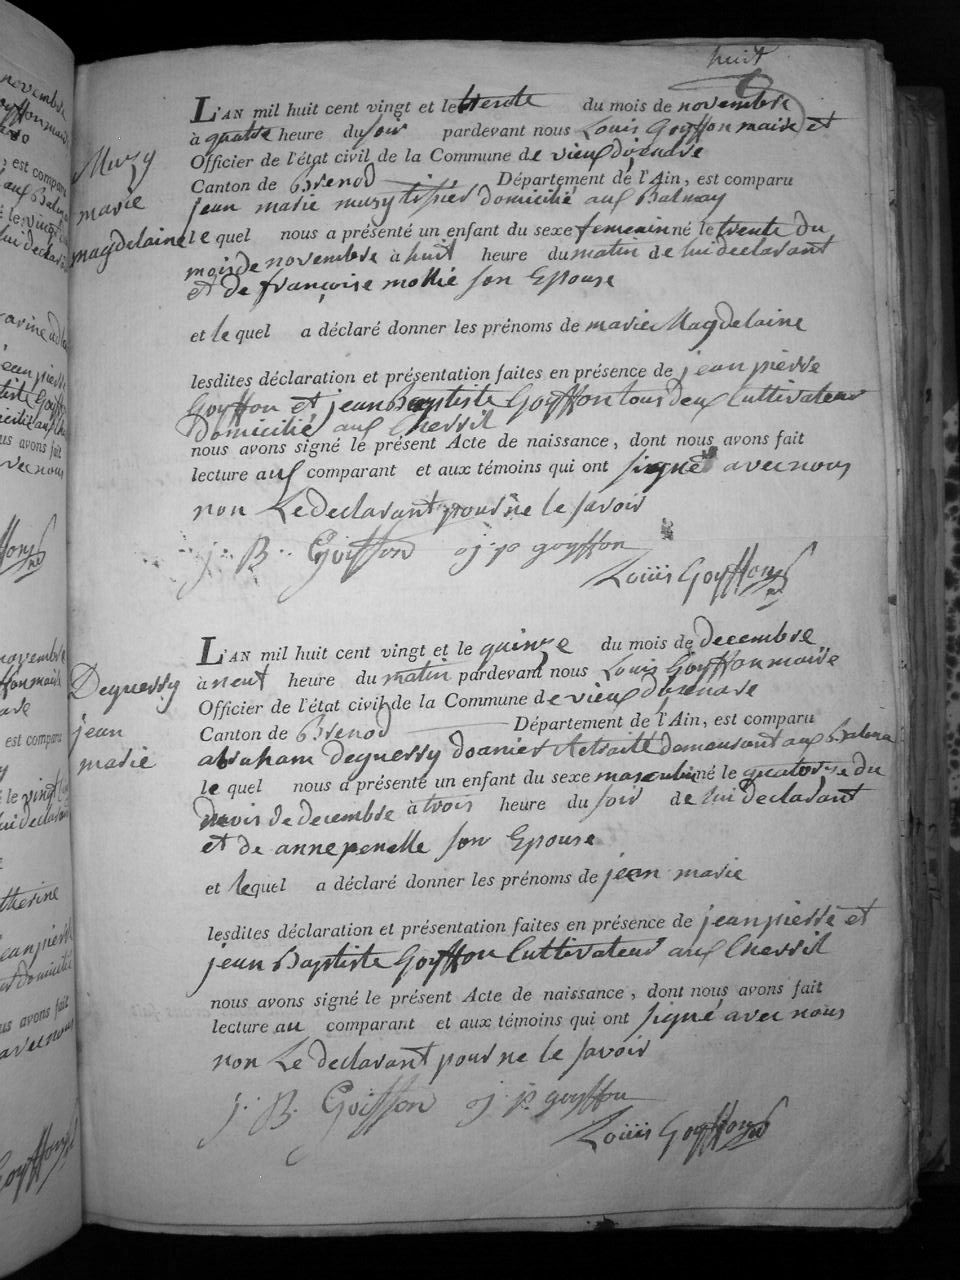 huit
L'AN mil huit cent vingt et le trente du mois de novembre
à quatre heure du soir pardevant nous Louis Goyffon maire et
Officier de l'état civil de la Commune de vieux d'izenave
Canton de Brenod Département de l'Ain, est comparu
jean marie musy tissier domicilié aux Balmay
le quel nous a présenté un enfant du sexe femeninné le trente du
mois de novembre à huit heure du matin de lui declarant
et de françoise mollie son Epouse
et le quel a déclaré donner les prénoms de marie Magdelaine
lesdites déclaration et présentation faites en présence de jean pierre
Goyffon et jean Baptiste Goyffon tous deux Cultivateur
domicilié aux Chevril
nous avons signé le présent Acte de naissance, dont nous avons fait
lecture aux comparant et aux témoins qui ont signé avec nous
non Le declarant pour ne le savoir
j. B. Goiffon j. p goyffon
Louiis Goyffon
Muzy
marie
magdelaine
L'AN mil huit cent vingt et le quinze du mois de decembre
à neuf heure du matin pardevant nous Louis Goyffon maire
Officier de l'état civil de la Commune de vieux d'izenave
Canton de Brenod Département de l'Ain, est comparu
abraham deguerry doanier Retraité demeurant aux Balma
le quel nous a présenté un enfant du sexe masculin né le quatorze du
mois de decembre à trois heure du soir de lui declarant
et de anne penelle son Epouse
et lequel a déclaré donner les prénoms de jean marie
lesdites déclaration et présentation faites en présence de jean pierre et
jean Baptiste Goyffon Cultivateur aux Chevril
nous avons signé le présent Acte de naissance, dont nous avons fait
lecture au comparant et aux témoins qui ont signé avec nous
non Le declarant pour ne le savoir
j. B. Goiffon j. p. goyffon
Louiis Goyffon
Deguerry
jean
marie